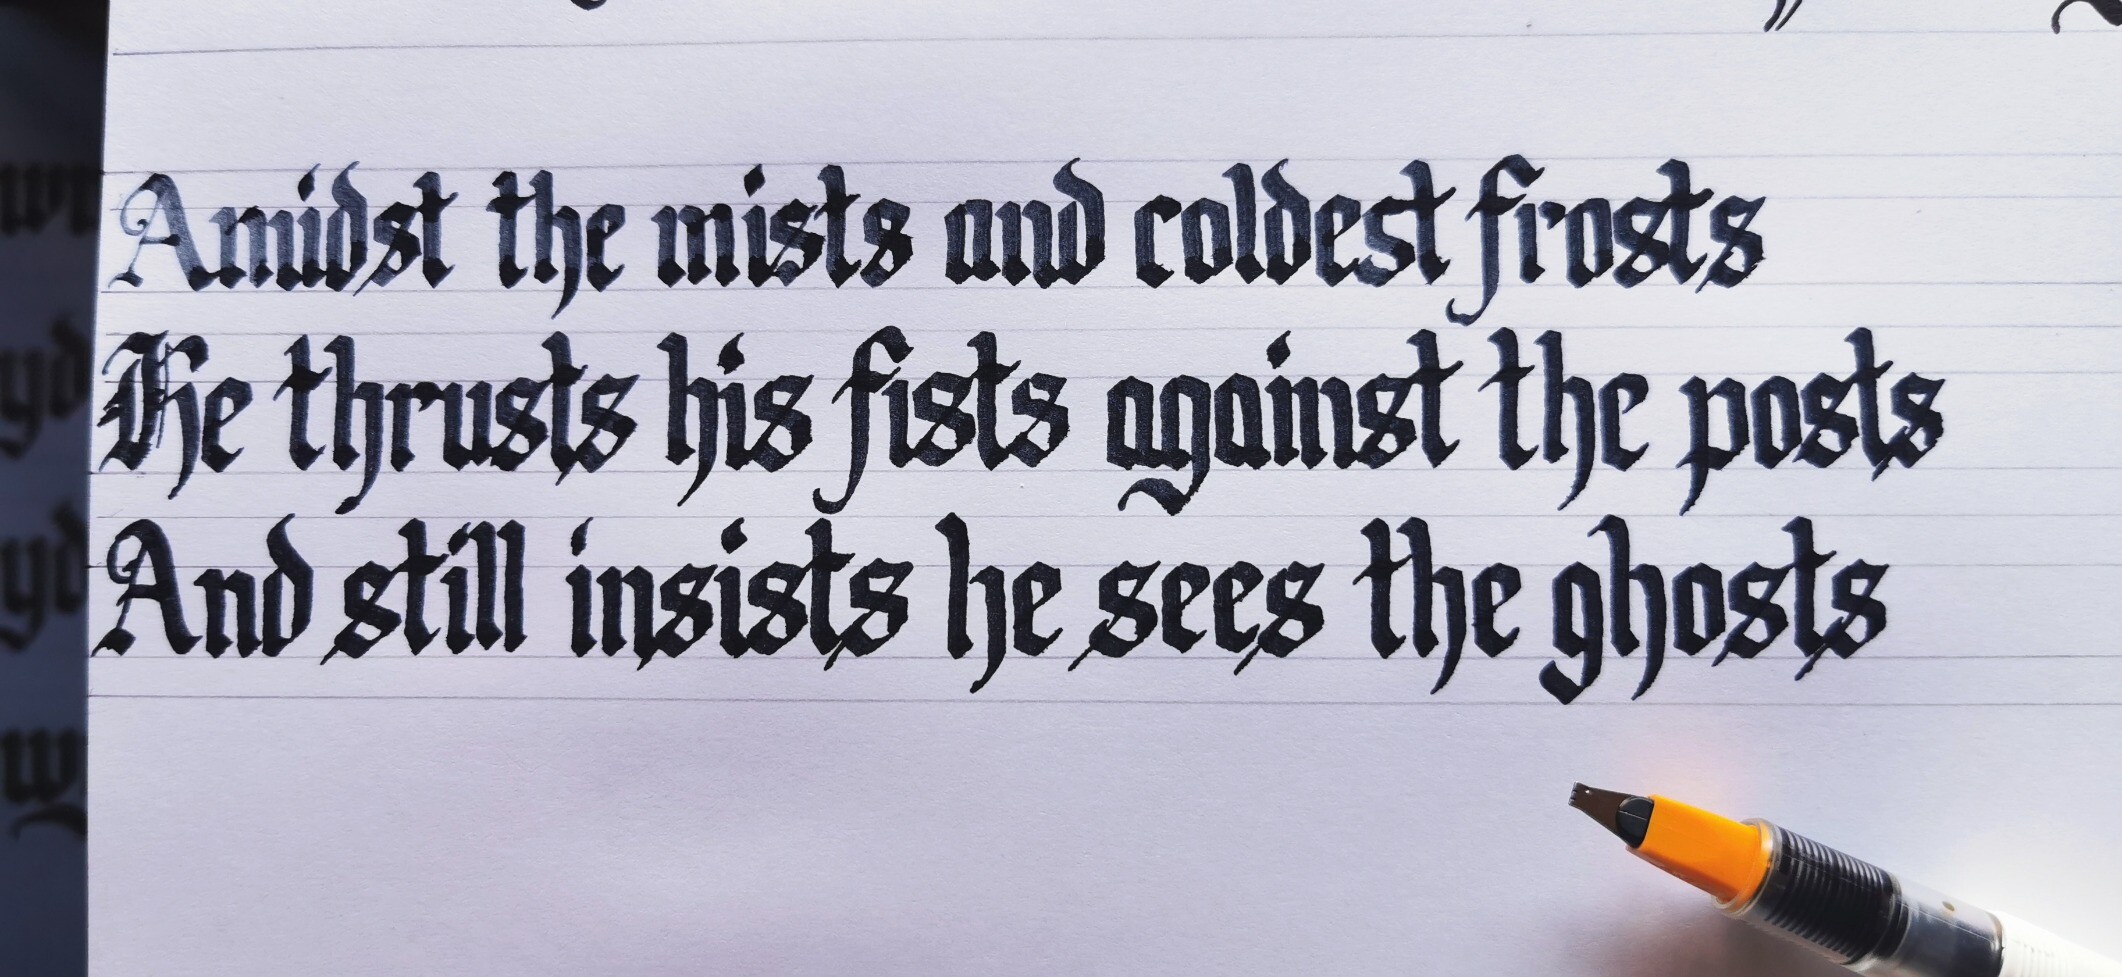 Amidst the mists and coldest frosts
He thrusts his fists against the posts
And still insists he sees the ghosts